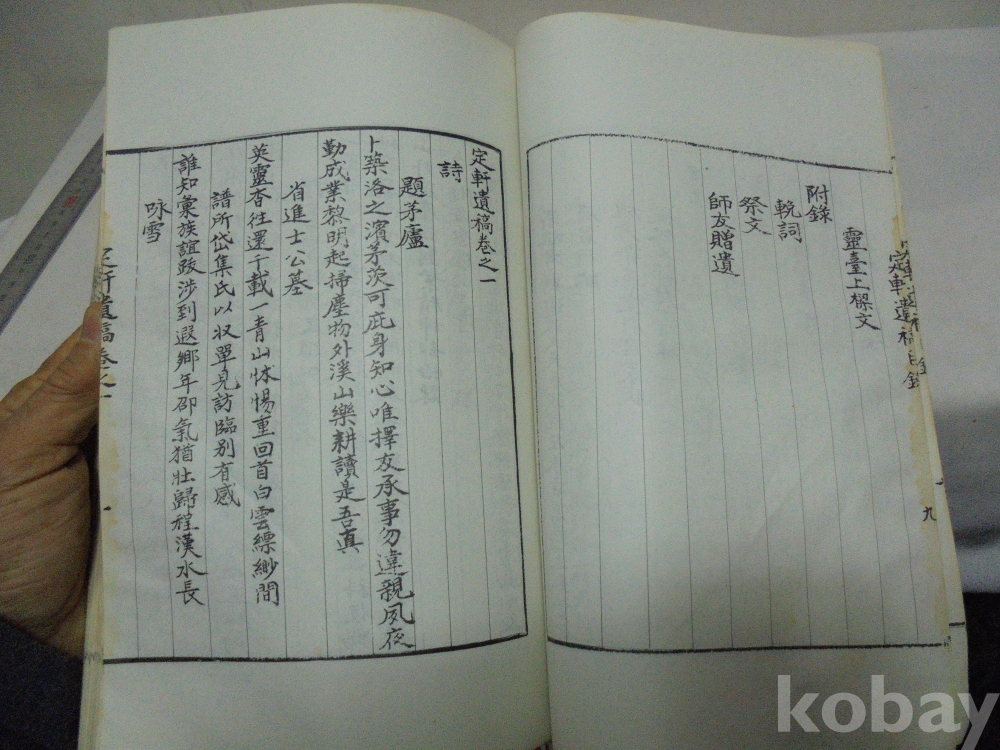 靈臺上樑文
附錄
輓詞
祭文
師友贈遺
九
定軒遺稿卷之一
詩
題茅廬
卜築洛之濱茅茨可庇身知心唯擇友承事勿違親夙夜
勤成業黎明起掃塵物外溪山樂耕讀是吾真
省進士公墓
英靈杳往還千載一青山怵惕重回首白雲縹緲間
譜所岱集氏以収單見訪臨別有感
誰知彙族誼跋涉到遐鄉年卲氣猶壯歸程漢水長
咏雪
定軒遺稿卷之一
一
kobay